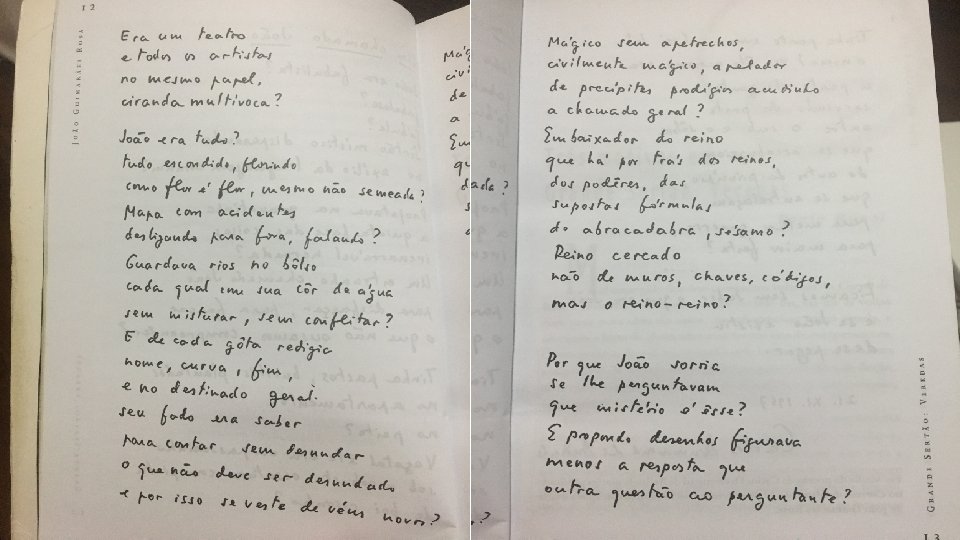 12
JOÃO GUIMARÃES ROSA
Era um teatro
e todos os artistas
no mesmo papel,
ciranda multívoca?
João era tudo?
tudo escondido, florindo
como flor é flor, mesmo não semeada?
Mapa com acidentes
deslizando para fora, falando?
Guardava rios no bôlso
cada qual em sua côr de água
sem misturar, sem conflitar?
E de cada gôta redigia
nome, curva, fim,
e no destinado geral
seu fado era saber
para contar sem desnudar
o que não deve ser desnudado
e por isso se veste de véus novos?
Mág
civi
de
a
Em
qu
dada?
Mágico sem apetrechos,
civilmente mágico, apelador
de precípites prodígios acudindo
a chamado geral?
Embaixador do reino
que há por trás dos reinos,
dos podêres, das
supostas fórmulas
do abracadabra, sésamo?
Reino cercado
não de muros, chaves, códigos,
mas o reino-reino?
Por que João sorria
se lhe perguntavam
que mistério é êsse?
E propondo desenhos figurava
menos a resposta que
outra questão ao perguntante?
GRANDE SERTÃO: VEREDAS
13